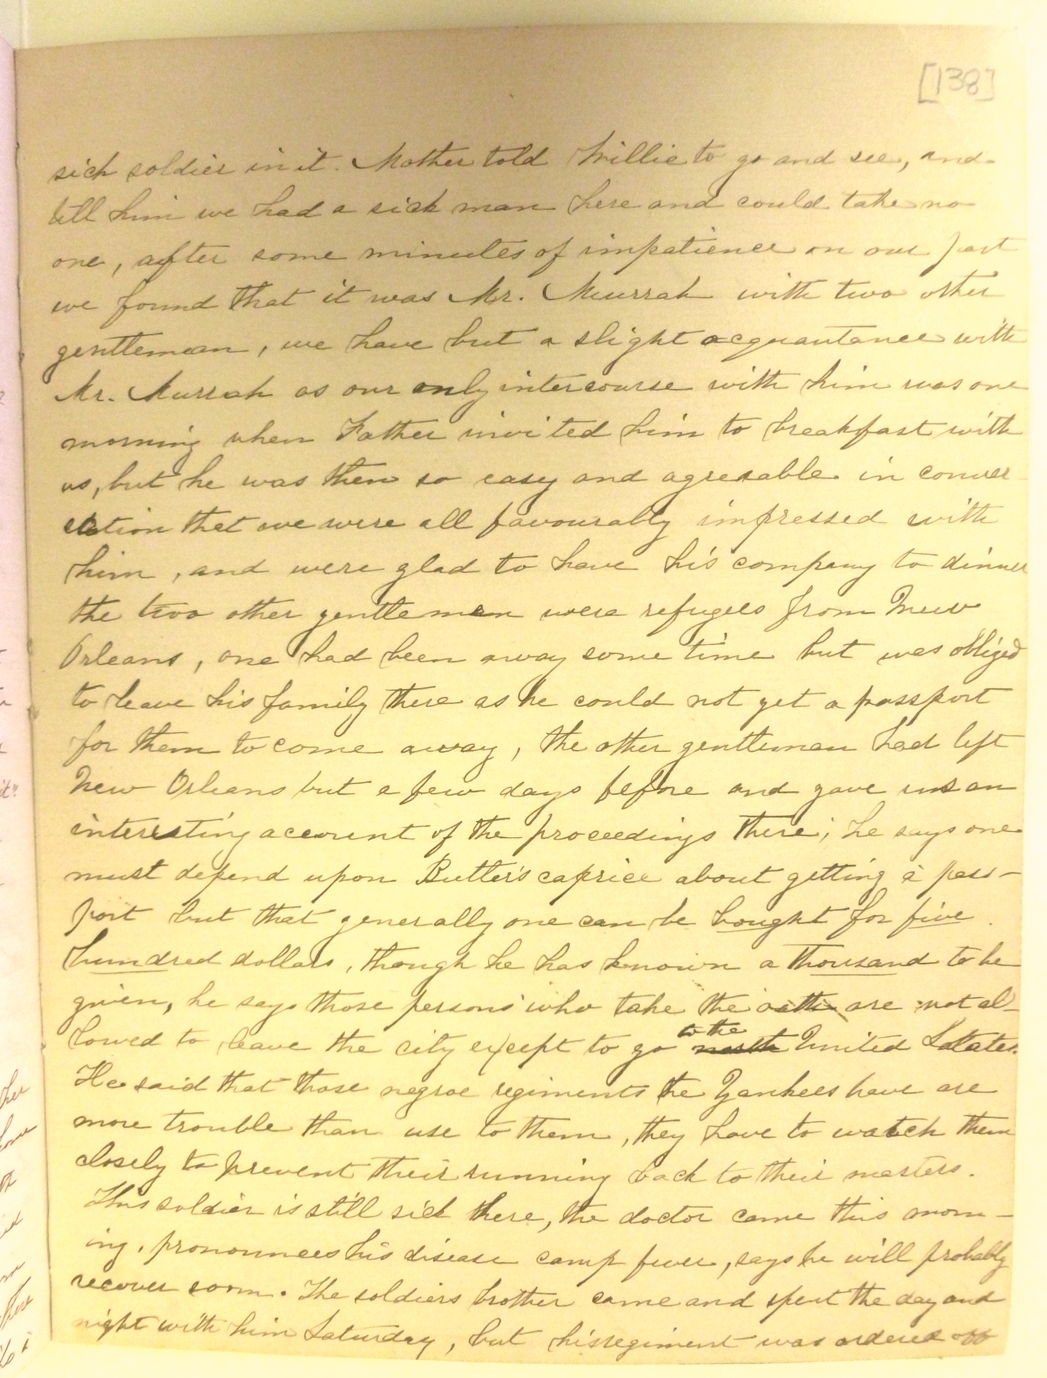 [138]
sick soldier in it. Mother told Willie to go and see, and
tell him we had a sick man here and could take no
one, after some minutes of impatience on our part
we found that it was Mr. Murrah with two other
gentleman, we have but a slight acquantance with
Mr. Murrah as our only intercourse with him was one
morning when Father invited him to breakfast with
us, but he was then so easy and agreeable in conver-
sation that we were all favourably impressed with
him, and were glad to have his company to dinner
the two other gentlemen were refugees from New
Orleans, one had been away some time but was obliged
to leave his family there as he could not get a passport
for them to come away, the other gentleman had left
New Orleans but a few days before and gave us an
interesting account of the proceedings there; he says one
must depend upon Butler's caprice about getting a pass-
port but that generally one can be bought for five
hundred dollars, though he has known a thousand to be
given, he says those persons who take the oath are not al-
lowed to leave the city except to go to the north United States.
He said that those negroe regiments the Yankees have are
more trouble than use to them, they have to watch them
closely to prevent their running back to their masters.
This soldier is still sick here, the doctor came this morn-
ing, pronounces his disease camp fever, says he will probably
recover soon. The soldiers brother came and spent the day and
night with him Saturday, but his regiment was ordered off